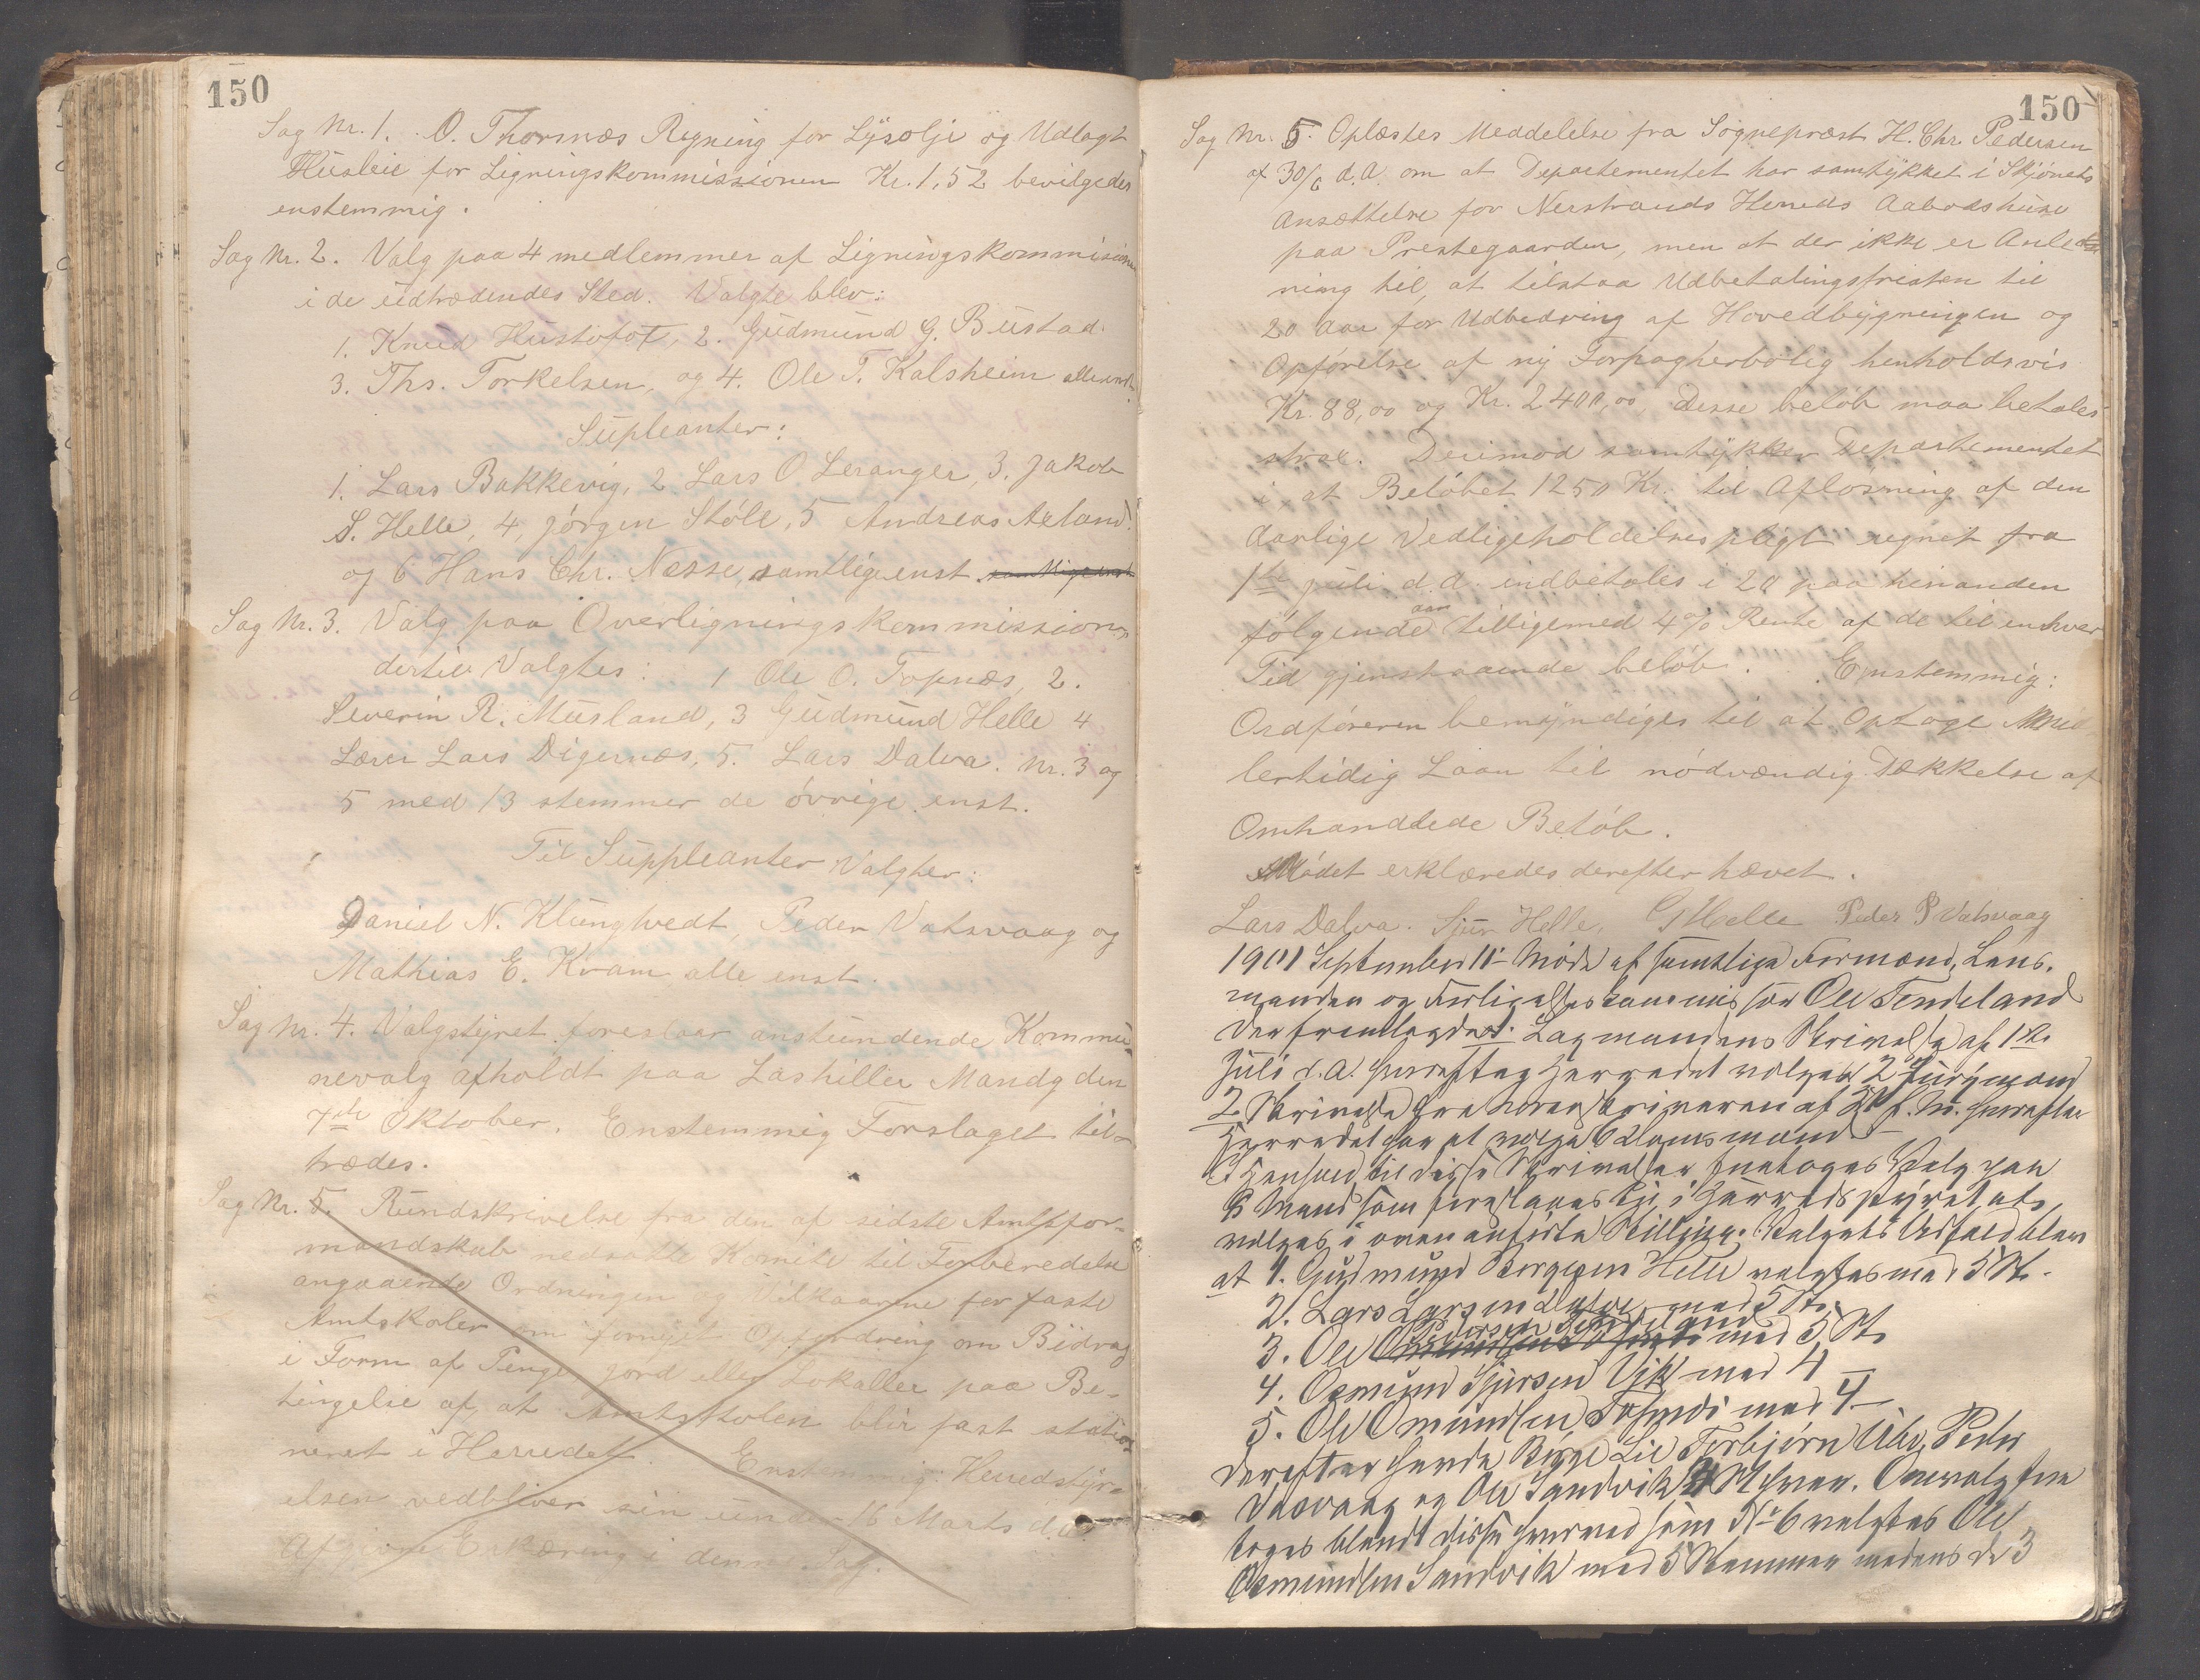 150
Sag Nr. 1. O. Thorsnæs Regning for Lysolje og Udlagt
Husleie for Ligningskommissionen Kr. 1,52 bevilgedes
enstemmig.
Sag Nr. 2. Valg paa 4 medlemmer af Ligningskommisionen
i de udtrædendes Sted. Valgte blev:
1. Knud Hustoft, 2. Gudmund G. Bustad
3. Ths. Torkelsen, og 4. Ole T. Kalsheim alle enst.
Supleanter:
1. Lars Bakkevig, 2 Lars O. Leranger, 3. Jakob
S. Helle, 4, Jørgen Støle, 5 Andreas Axland
og 6 Hans Chr. Nesse, samtlige enst. samtlige enst
Sag Nr. 3. Valg paa Overligningskommission,
dertil Valgtes: 1 Ole O. Topnæs, 2.
Severin R. Musland, 3 Gudmund Helle 4
Lærer Lars Digernæs, 5. Lars Dalva. Nr. 3 og
5 med 13 stemmer de øvrige enst.
Til Suppleanter Valgtes:
Daniel N. Klungtvedt, Peder Vatsvaag og
Mathias E. Kvam alle enst.
Sag Nr. 4. Valgstyret foreslaar anstundende Kommu-
nevalg afholdt paa Lashiller Mandg den
7de Oktober. Enstemmig Forslaget til-
trædes.
Sag Nr. 5. Rundskrivelse fra den af sidste Amtsfor-
mandskab nedsatte Komite til Forberedelse
angaaende Ordningen og Vilkaarene for faste
Amtskoler om fornyet Opfordring om Bidrag
i Form af Penge jord eller Lokaller paa Be-
tingelse af, at Amtsskolen blir fast statio-
neret i Herredet. Enstemmig: Herredstyr-
elsen vedbliver sin under 16 Marts d. a.
Afgivne Erkæring i denne Sag.
150
Sag Nr. 5. Oplæstes Meddelelse fra Sogneprest H. Chr. Pedersen
af 30/6 d. a. om at Departementet har samtykket i Skjønets
Ansættelse for Nerstrands Herreds Aabodshuse
paa Prestegaarden, men at der ikke er Anled-
ning til, at tilstaa Udbetalingsfristen til
20 Aar for Udbedring af Hovedbygningen og
Opførelse af ny Forpagterbolig henholdsvis
Kr. 88,00 og Kr. 2400,00, Disse beløb maa betales
strax. Derimod samtykker Departementet
i, at Beløbet 1250 Kr. til Afløsning af den
aarlige Vedligeholdelsespligt regnet fra
1ste juli d. a. indbetales i 20 paa hinanden
følgende aar tilligemed 4% Rente af de til enhver
Tid gjenstaaende beløb. Enstemmig:
Ordføreren bemyndiges til at Optage Mid-
lertidig Laan til nødvendig Dækkelse af
Omhandlede Beløb.
Mødet erklæredes derefter hævet.
Lars Dalva. Sjur Helle, G Helle Peder P Vatsvaag
1901 September 11te Møde af samtlige Formænd, Lens-
manden og Forligelseskommissær Ole Tendeland
Der fremlagdes 1. Lagmandens Skrivelse af 1ste
Juli d. a. hvorefter Herredet vælger 2 Jurymænd
2 Skrivelse fra Sorenskriveren af hvorefter
Herredet har at vælge 6 Domsmænd
I Henhold til disse Skrivelser foretoges Valg paa
6 Mand som foreslaaes til i Herredsstyret at
vælges i ovenanførte Stilling. Valgets Udfald blev
at 1. Gudmund Torgersen Helle valgtes med 5 St.
2. Lars Larsen Dalve med 5 St.
3. Ole Pedersen Tendeland med 5 St
4. Osmund Sjursen Vik med 4 —
5. Ole Omundsen med 4 —
Derefter havde Børge Lie Torbjørn Ube, Peder
Vasvaag og Ole Sandvik St hver. Omvalg fore
toges blandt disse hvorved som No 6 valgtes Ole
Osmundsen Sandvik med 5 Stemmer medens de 3